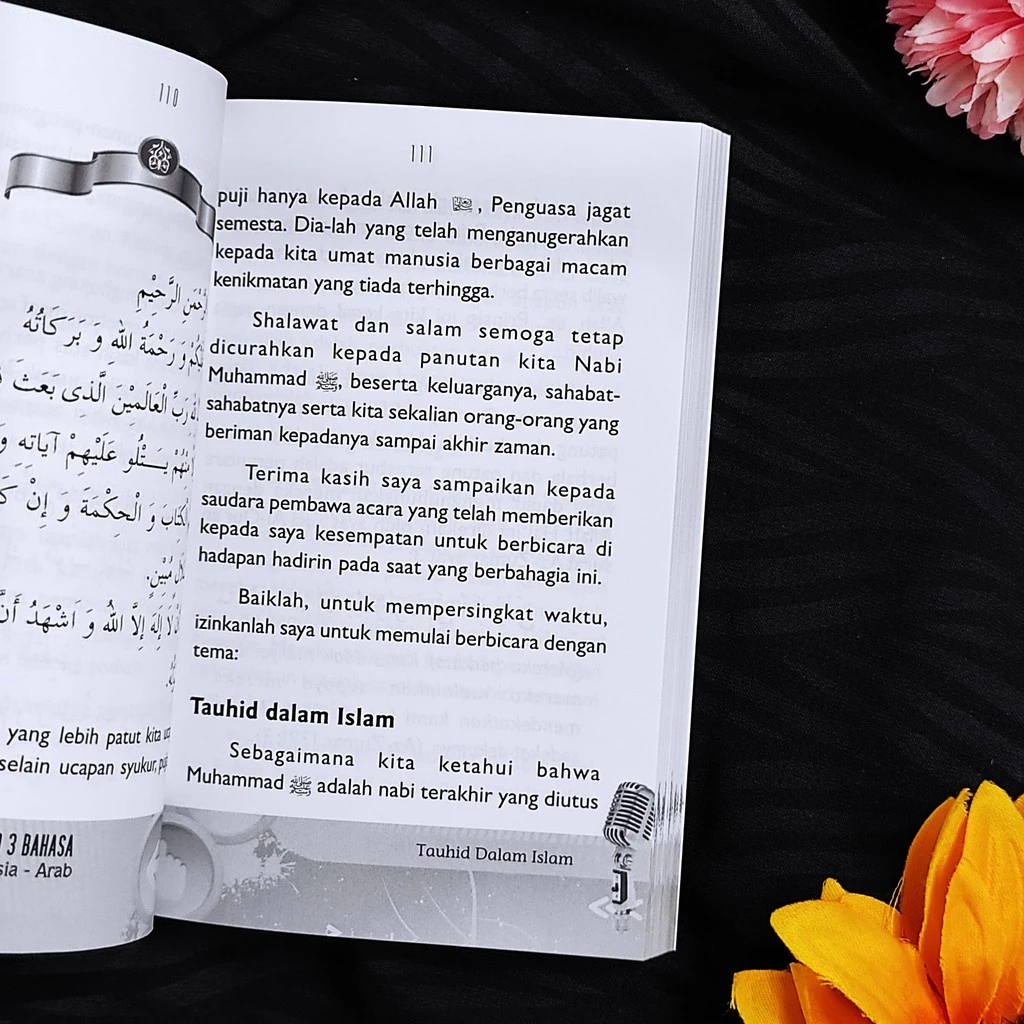 110
الرَّحِيْمِ
وَ رَحْمَةُ اللهِ وَ بَرَكَاتُهُ
رَبِّ الْعَالَمِيْنَ الَّذِى بَعَثَ
يَتْلُو عَلَيْهِمْ آيَاتِه
وَ الْحِكْمَةَ وَ إِنْ
مُبِيْنٍ.
إِلَهَ إِلَّا اللهُ وَ اَشْهَدُ أَنَّ
yang lebih patut kita
selain ucapan syukur,
3 BAHASA
- Arab
111
puji hanya kepada Allah ﷻ, Penguasa jagat
semesta. Dia-lah yang telah menganugerahkan
kepada kita umat manusia berbagai macam
kenikmatan yang tiada terhingga.
Shalawat dan salam semoga tetap
dicurahkan kepada panutan kita Nabi
Muhammad ﷺ, beserta keluarganya, sahabat-
sahabatnya serta kita sekalian orang-orang yang
beriman kepadanya sampai akhir zaman.
Terima kasih saya sampaikan kepada
saudara pembawa acara yang telah memberikan
kepada saya kesempatan untuk berbicara di
hadapan hadirin pada saat yang berbahagia ini.
Baiklah, untuk mempersingkat waktu,
izinkanlah saya untuk memulai berbicara dengan
tema:
Tauhid dalam Islam
Sebagaimana kita ketahui bahwa
Muhammad ﷺ adalah nabi terakhir yang diutus
Tauhid Dalam Islam